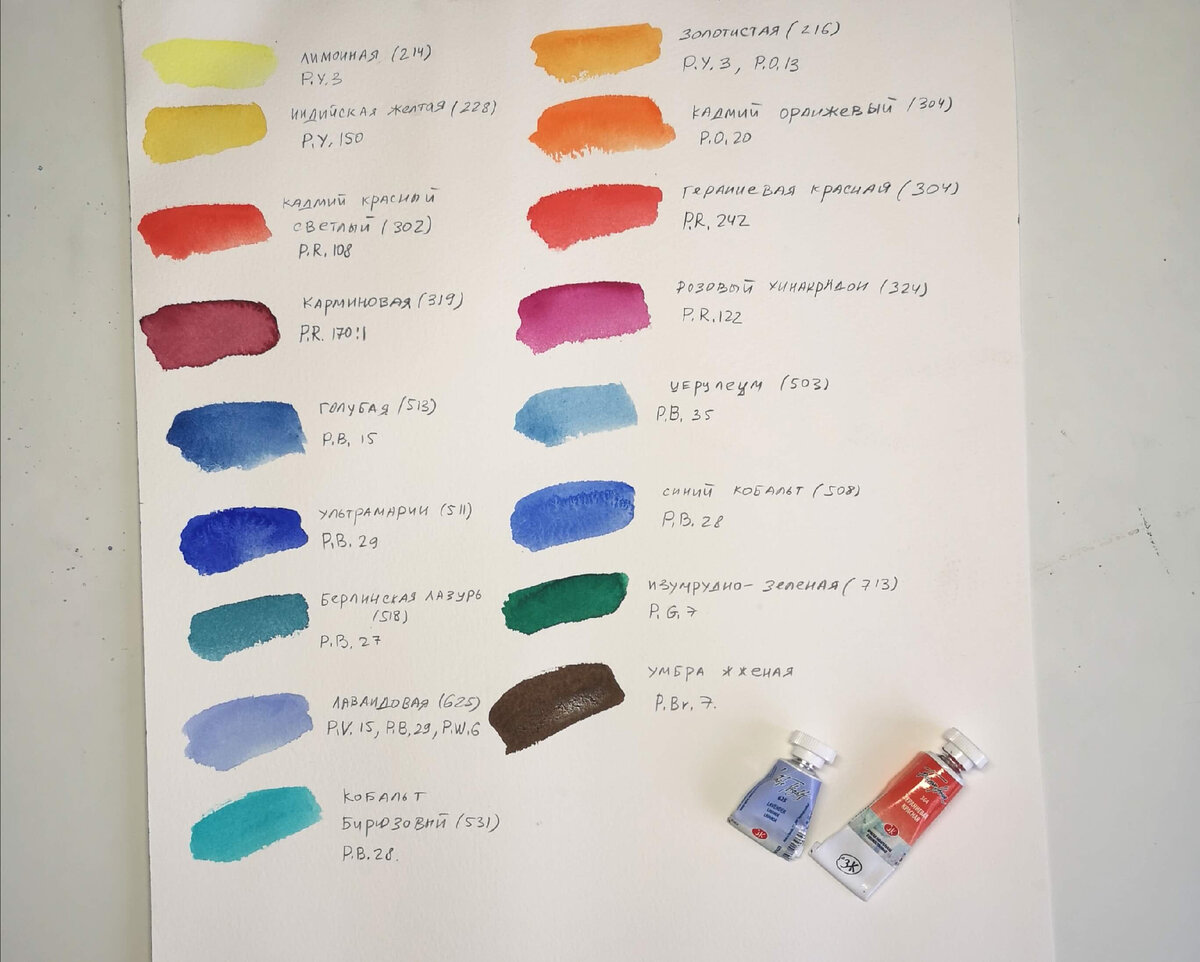 лимонная (214)
P.Y.3
индийская желтая (228)
P.Y. 150
кадмий красный
светлый (302)
P.R. 108
карминовая (319)
P.R. 170:1
голубая (513)
P.B. 15
ультрамарин (511)
P.B. 29
берлинская лазурь
(518)
P.B. 27
лавандовая (625)
P.V. 15, P.B.29, P.W.6
кобальт
бирюзовый (531)
P.B.28.
золотистая (216)
P.Y.3, P.O.13
кадмий оранжевый (304)
P.O.20
гераниевая красная (304)
P.R. 242
розовый хинакридон (324)
P.R.122
церулеум (503)
P.B. 35
синий кобальт (508)
P.B. 28
изумрудно-зеленая (713)
P.G.7
умбра жженая
P.Br.7.
LAVENDER
ГЕРАНИЕВАЯ
КРАСНАЯ
ЗХК